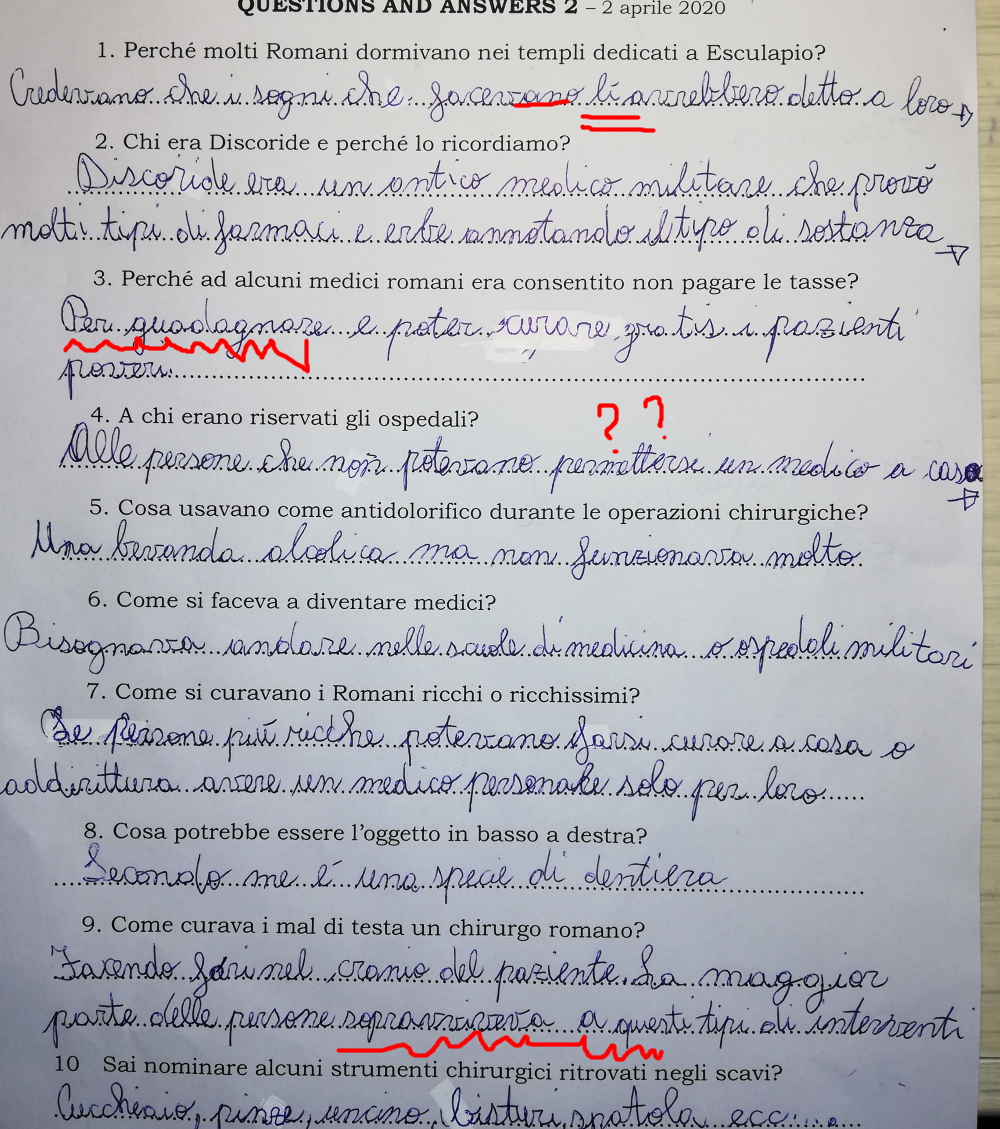 QUESTIONS AND ANSWERS 2 – 2 aprile 2020
1. Perché molti Romani dormivano nei templi dedicati a Esculapio?
Credevano che i sogni che facevano lì avrebbero detto a loro →
2. Chi era Discoride e perché lo ricordiamo?
Discoride era un antico medico militare che provò
molti tipi di farmaci e erbe annotando il tipo di sostanza →
3. Perché ad alcuni medici romani era consentito non pagare le tasse?
Per guadagnare e poter curare gratis i pazienti
poveri
? ?
4. A chi erano riservati gli ospedali?
Alle persone che non potevano permettersi un medico a casa →
5. Cosa usavano come antidolorifico durante le operazioni chirurgiche?
Una bevanda alcolica ma non funzionava molto.
6. Come si faceva a diventare medici?
Bisognava andare nelle scuole di medicina o ospedali militari
7. Come si curavano i Romani ricchi o ricchissimi?
Le persone più ricche potevano farsi curare a casa o
addirittura avere un medico personale solo per loro
8. Cosa potrebbe essere l'oggetto in basso a destra?
Secondo me è una specie di dentiera
9. Come curava i mal di testa un chirurgo romano?
Facendo fori nel cranio del paziente. La maggior
parte delle persone sopravviveva a questi tipi di interventi
10 Sai nominare alcuni strumenti chirurgici ritrovati negli scavi?
Cucchiaio, pinze, uncino, bisturi, spatola ecc....